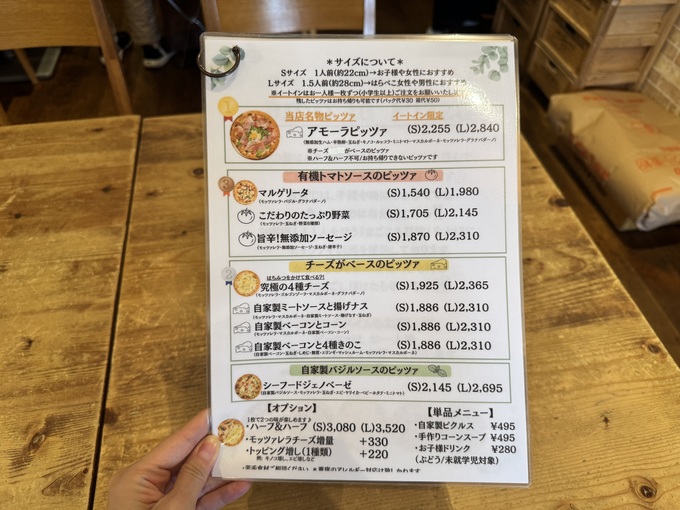 ＊サイズについて＊
Sサイズ 1人前(約22cm)→お子様や女性におすすめ
Lサイズ 1.5人前(約28cm)→はらぺこ女性や男性におすすめ
※イートインはお一人様一枚ずつ(小学生以上)ご注文をお願いいたします
残したピッツァはお持ち帰りも可能です(パック代¥30 袋代¥50)
1
当店名物ピッツァ イートイン限定
アモーラピッツァ (S)2,255 (L)2,840
※チーズ がベースのピッツァ
※ハーフ&ハーフ不可/お持ち帰りできないピッツァです
有機トマトソースのピッツァ
3
マルゲリータ (S)1,540 (L)1,980
(モッツァレラ・バジル・グラナパダーノ)
こだわりのたっぷり野菜 (S)1,705 (L)2,145
旨辛!無添加ソーセージ (S)1,870 (L)2,310
(モッツァレラ・無添加ソーセージ・玉ねぎ・唐辛子)
チーズがベースのピッツァ
2
はちみつをかけて食べる?!
究極の4種チーズ (S)1,925 (L)2,365
(モッツァレラ・ゴルゴンゾーラ・マスカルポーネ・グラナパダーノ)
自家製ミートソースと揚げナス (S)1,886 (L)2,310
(モッツァレラ・マスカルポーネ・自家製ミートソース・揚げなす・玉ねぎ)
自家製ベーコンとコーン (S)1,886 (L)2,310
(モッツァレラ・マスカルポーネ・自家製ベーコン・コーン)
自家製ベーコンと4種きのこ (S)1,886 (L)2,310
(自家製ベーコン・玉ねぎ・しめじ・舞茸・エリンギ・マッシュルーム・モッツァレラ・マスカルポーネ)
自家製バジルソースのピッツァ
シーフードジェノベーゼ (S)2,145 (L)2,695
(自家製バジルソース・モッツァレラ・玉ねぎ・エビ・ヤリイカ・ベビーホタテ・ミニトマト)
【オプション】
1枚で2つの味が楽しめます♪
・ハーフ&ハーフ (S)3,080 (L)3,520
・モッツァレラチーズ増量 +330
・トッピング増し(1種類) +220
例：キノコ増し、エビ増しなど
【単品メニュー】
・自家製ピクルス ¥495
・手作りコーンスープ ¥495
・お子様ドリンク ¥280
(ぶどう/未就学児対象)